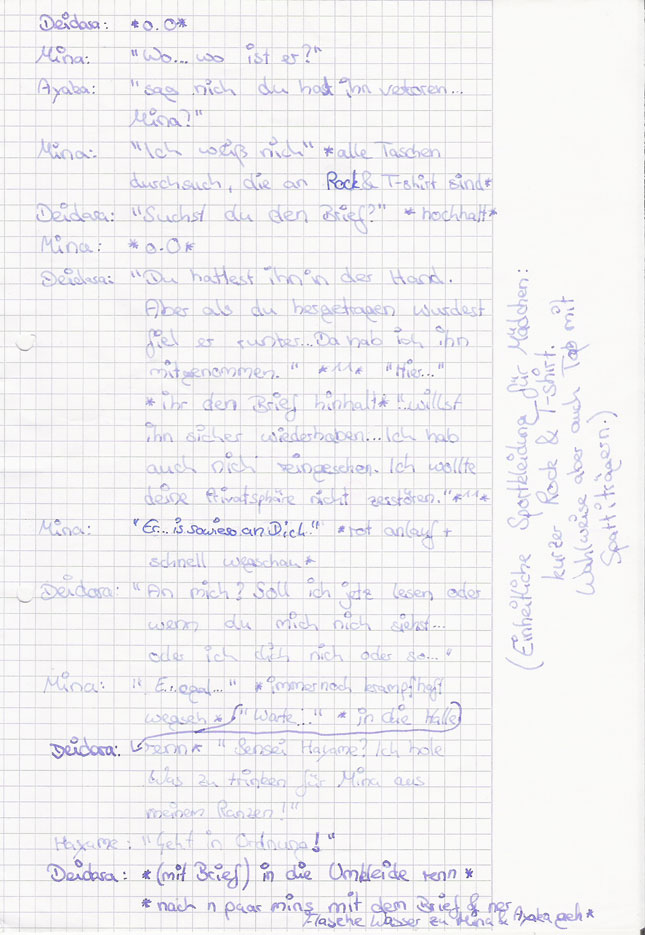 Deidara: *o.O*
Mina: "Wo... wo ist er?"
Ayaka: "sag nich du hast ihn verloren...
Mina?"
Mina: "Ich weiß nich" *alle Taschen
durchsuch, die an Rock & T-shirt sind*
Deidara: "Suchst du den Brief?" *hochhalt*
Mina: *o.O*
Deidara: "Du hattest ihn in der Hand.
Aber als du hergetragen wurdest
fiel er runter... Da hab ich ihn
mitgenommen." *^^* "Hier..."
*ihr den Brief hinhalt* "..willst
ihn sicher wiederhaben... Ich hab
auch nich reingesehen. Ich wollte
deine Privatsphäre nicht zerstören." *^^*
Mina: "Er... is sowieso an Dich.." *rot anlauf +
schnell wegschau*
Deidara: "An mich? Soll ich jetz lesen, oder
wenn du mich nich siehst...
oder ich dich nich oder so..."
Mina: "E.. egal..." *immernoch krampfhaft
wegseh*
"Warte..." *in die Halle
Deidara: renn* "Sensei Hayame? Ich hole
was zu trinken für Mina aus
meinem Ranzen!"
Hayame: "Geht in Ordnung!"
Deidara: *(mit Brief) in die Umkleide renn*
*nach n paar mins mit dem Brief & ner
Flasche Wasser zu Mina & Ayaka geh*
(Einheitliche Sportkleidung für Mädchen:
kurzer Rock & T-shirt.
Wahlweise aber auch Top mit
Spattiträgern.)